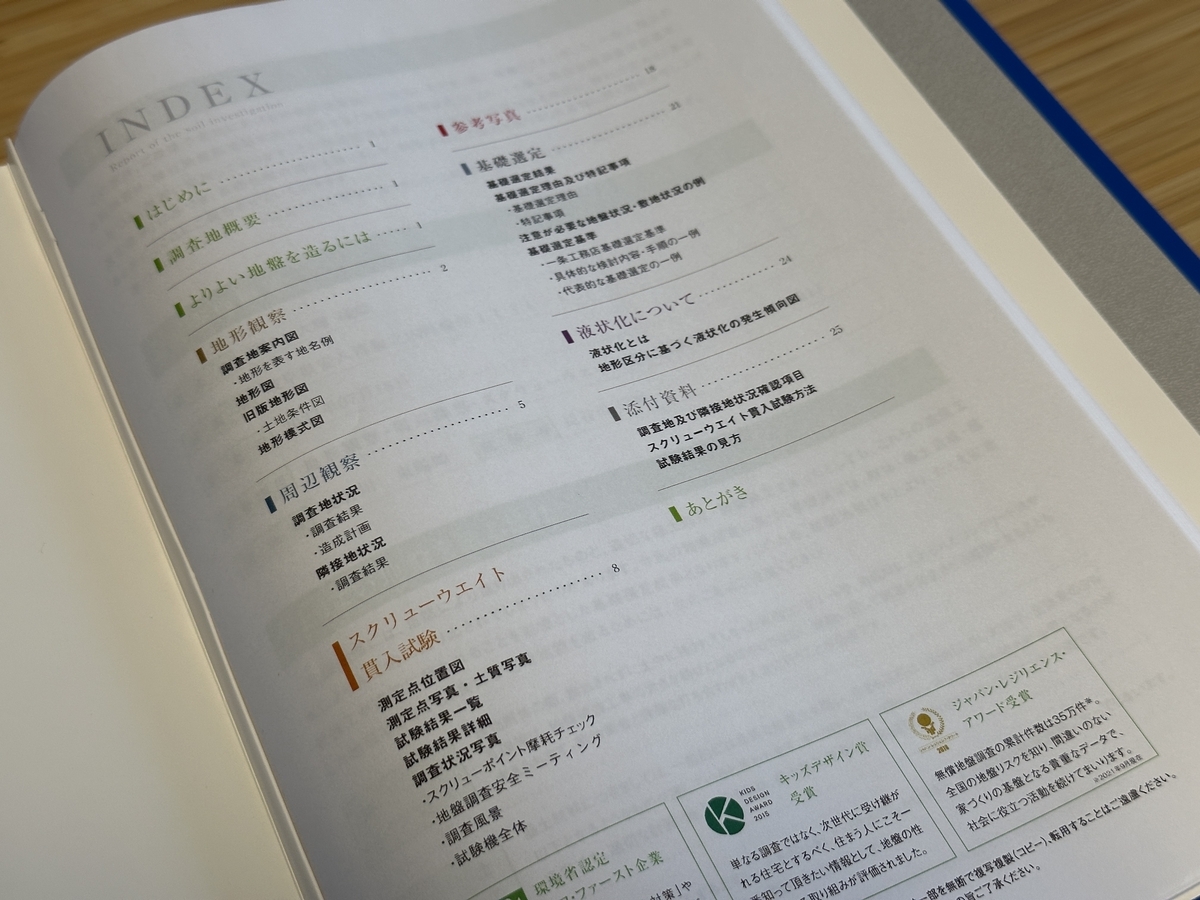 INDEX
Report of the soil investigation
はじめに 1
調査地概要 1
よりよい地盤を造るには 1
地形観察 2
調査地案内図
・地形を表す地名例
地形図
旧版地形図
・土地条件図
地形模式図
周辺観察 5
調査地状況
・調査結果
・造成計画
隣接地状況
・調査結果
スクリューウエイト
貫入試験 8
測定点位置図
測定点写真・土質写真
試験結果一覧
試験結果詳細
調査状況写真
・スクリューポイント摩耗チェック
・地盤調査安全ミーティング
・調査風景
・試験機全体
参考写真 18
基礎選定 21
基礎選定結果
基礎選定理由及び特記事項
・基礎選定理由
・特記事項
注意が必要な地盤状況・敷地状況の例
基礎選定基準
・一条工務店基礎選定基準
・具体的な検討内容・手順の一例
・代表的な基礎選定の一例
液状化について 24
液状化とは
地形区分に基づく液状化の発生傾向図
添付資料 25
調査地及び隣接地状況確認項目
スクリューウエイト貫入試験方法
試験結果の見方
あとがき
環境省認定
・ファースト企業
対策」や
KIDS
DESIGN
AWARD
2015
キッズデザイン賞
受賞
単なる調査ではなく、次世代に受け継が
れる住宅とするべく、住まう人にこそ一
番知って頂きたい情報として、地盤の性
取り組みが評価されました。
ジャパン・レジリエンス・
アワード受賞
2018
無償地盤調査の累計件数は35万件※。
全国の地盤リスクを知り、間違いのない
家づくりの基盤となる貴重なデータで、
社会に役立つ活動を続けてまいります。
※2021年9月現在
一部を無断で複写複製(コピー)、転用することはご遠慮ください。
の旨ご了承ください。